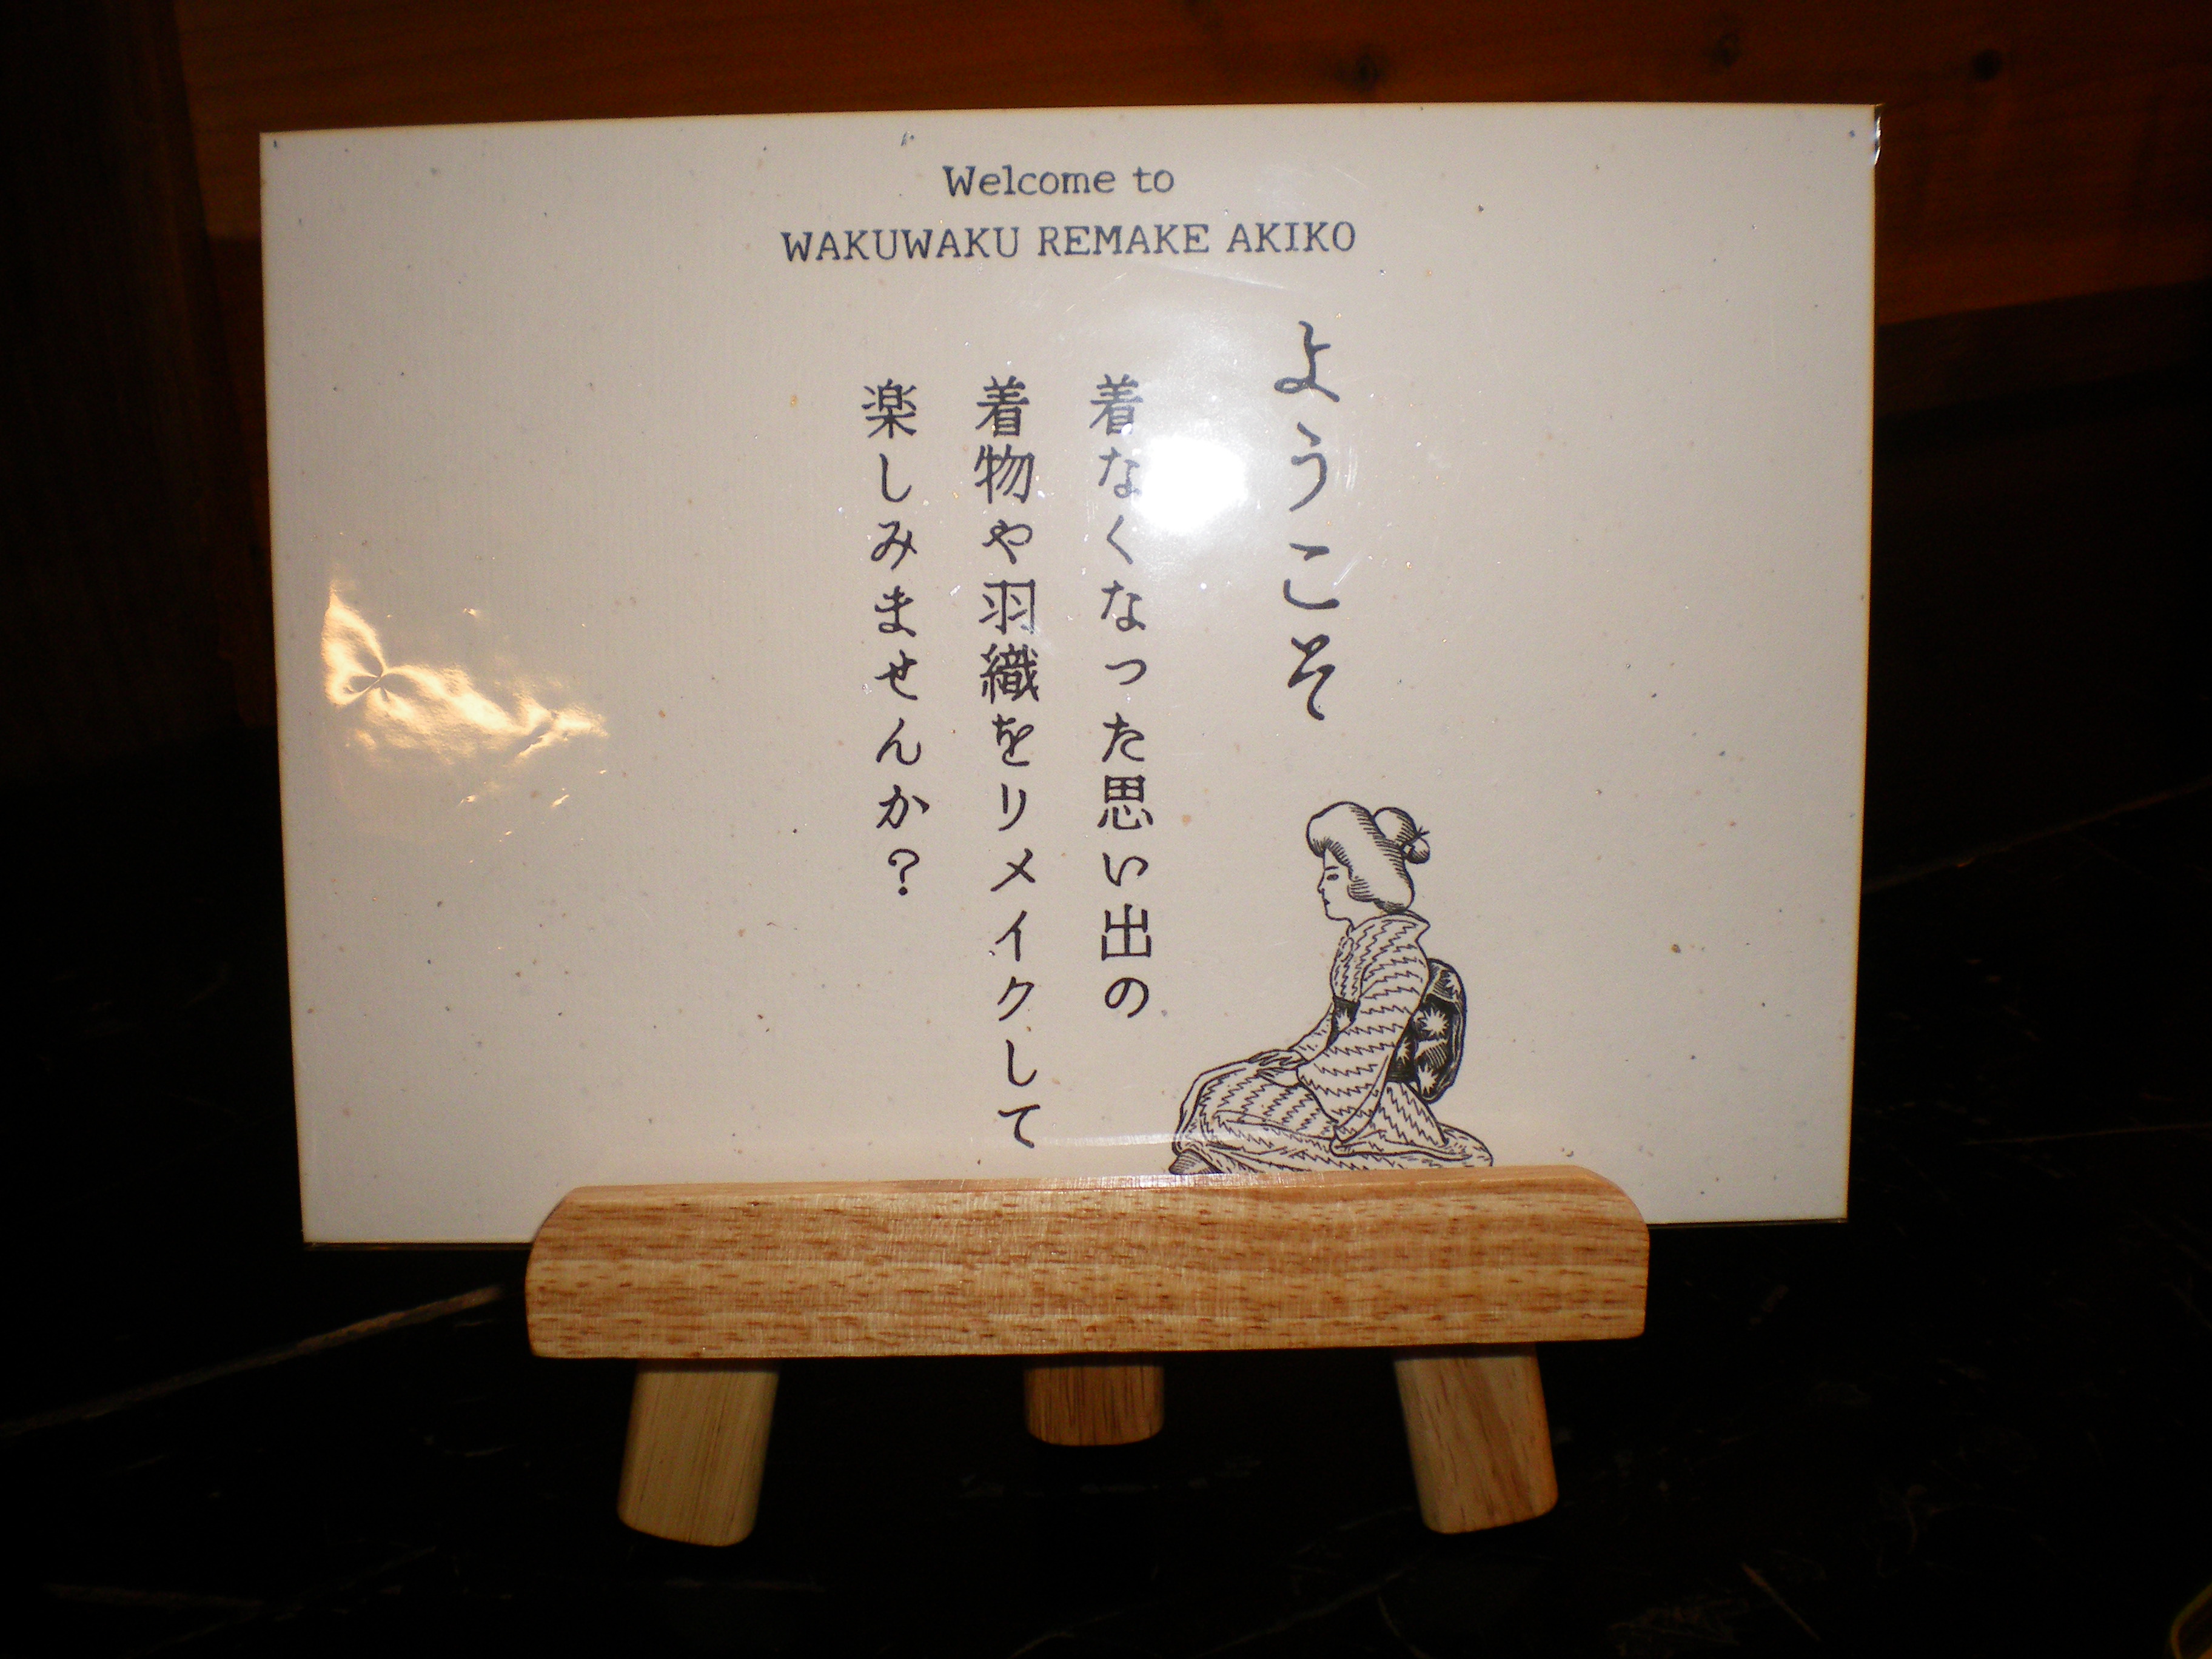 Welcome to
WAKUWAKU REMAKE AKIKO
ようこそ
着なくなった思い出の
着物や羽織をリメイクして
楽しみませんか？